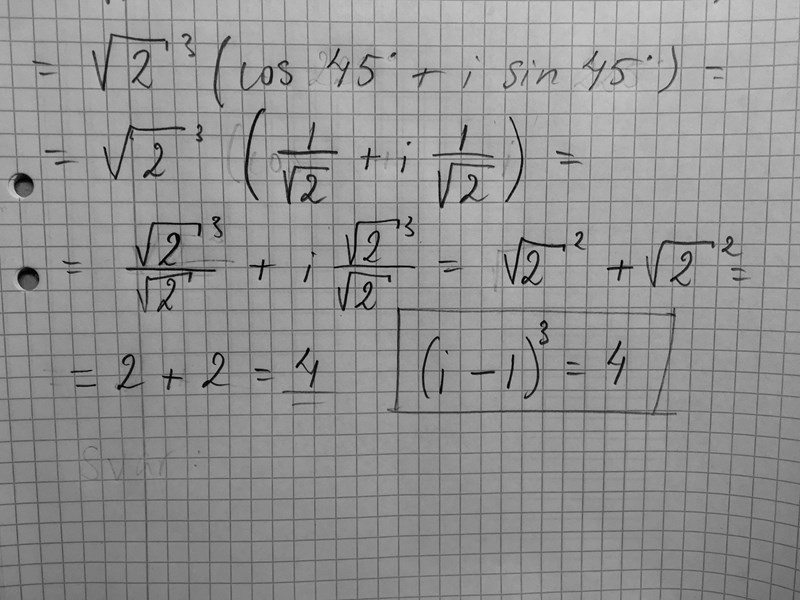 = √2³ (cos 45° + i sin 45°) =
= √2³ (1/√2 + i 1/√2) =
= √2³/√2 + i √2³/√2 = √2² + √2² =
= 2 + 2 = 4 (i - 1)³ = 4
Svar: